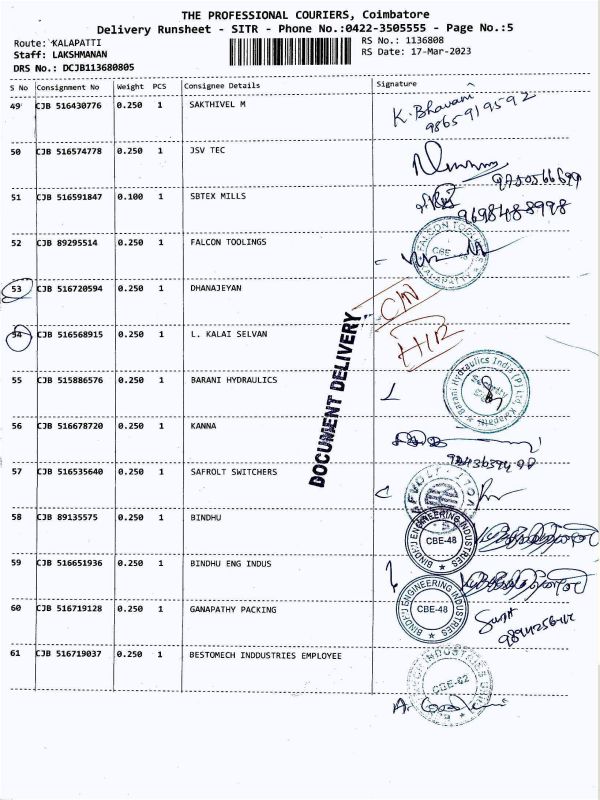 THE PROFESSIONAL COURIERS, Coimbatore
Delivery Runsheet - SITR - Phone No.:0422-3505555 - Page No.:5
Route: KALAPATTI
RS No.: 1136808
Staff: LAKSHMANAN
RS Date: 17-Mar-2023
DRS No.: DCJB113680805
S No Consignment No Weight PCS Consignee Details Signature
49 CJB 516430776 0.250 1 SAKTHIVEL M K. Bhavani
9865919592
50 CJB 516574778 0.250 1 JSV TEC
51 CJB 516591847 0.100 1 SBTEX MILLS
9698488998
52 CJB 89295514 0.250 1 FALCON TOOLINGS
FALCON TOOLINGS CBE-48 KALAPATTY
53 CJB 516720594 0.250 1 DHANAJEYAN
54 CJB 516568915 0.250 1 L. KALAI SELVAN
DOCUMENT DELIVERY
55 CJB 515886576 0.250 1 BARANI HYDRAULICS
Barani Hydraulics India (P) Ltd.
56 CJB 516678720 0.250 1 KANNA
57 CJB 516535640 0.250 1 SAFROLT SWITCHERS
58 CJB 89135575 0.250 1 BINDHU
BINDHU ENGINEERING INDUSTRIES CBE-48
59 CJB 516651936 0.250 1 BINDHU ENG INDUS
BINDHU ENGINEERING INDUSTRIES CBE-48
60 CJB 516719128 0.250 1 GANAPATHY PACKING
61 CJB 516719037 0.250 1 BESTOMECH INDDUSTRIES EMPLOYEE
CBE-62